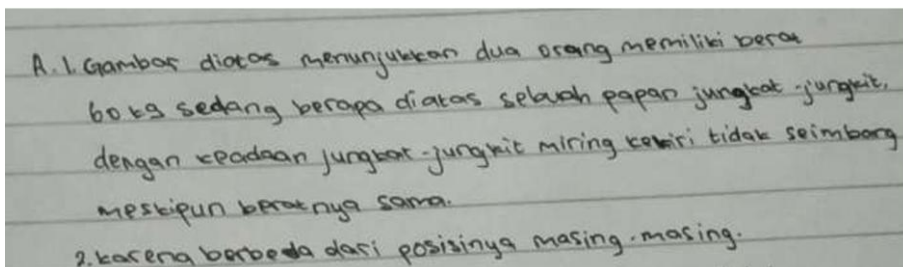 A. 1. Gambar diatas menunjukkan dua orang memiliki berat
60 kg sedang berapa diatas sebuah papan jungkat-jungkit,
dengan kpadaan jungkat-jungkit miring kekiri tidak seimbang
meskipun beratnya sama.
2. karena berbeda dari posisinya masing-masing.